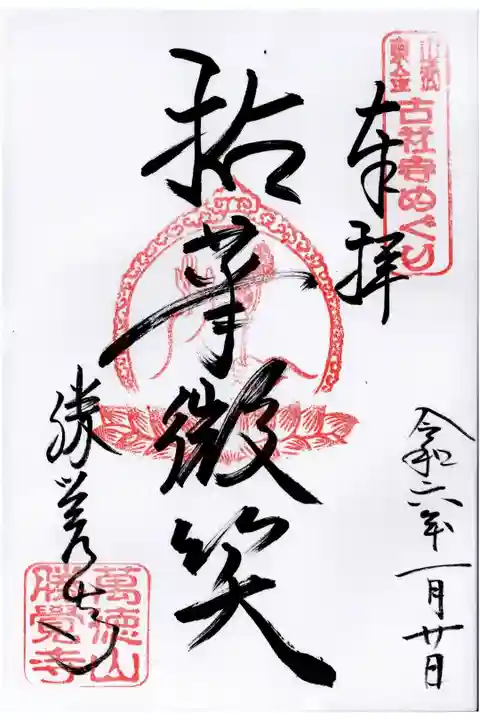 古社寺めぐり
奉拝
拈華微笑
令和六年一月廿日
勝覚寺
萬徳山
勝覺寺